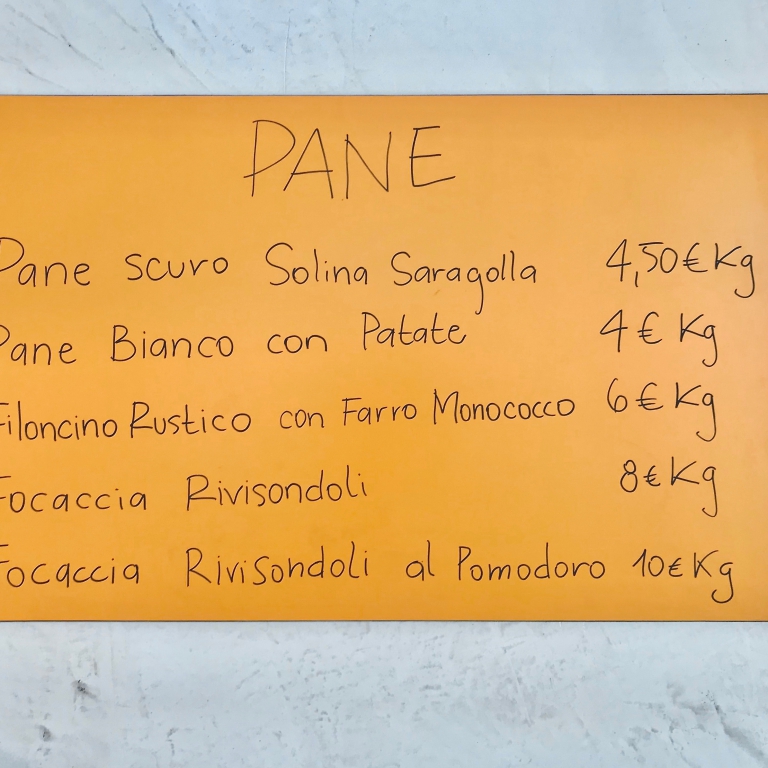 PANE
Pane scuro Solina Saragolla 4,50€ Kg
Pane Bianco con Patate 4€ Kg
Filoncino Rustico con Farro Monococco 6€ Kg
Focaccia Rivisondoli 8€ Kg
Focaccia Rivisondoli al Pomodoro 10€ Kg